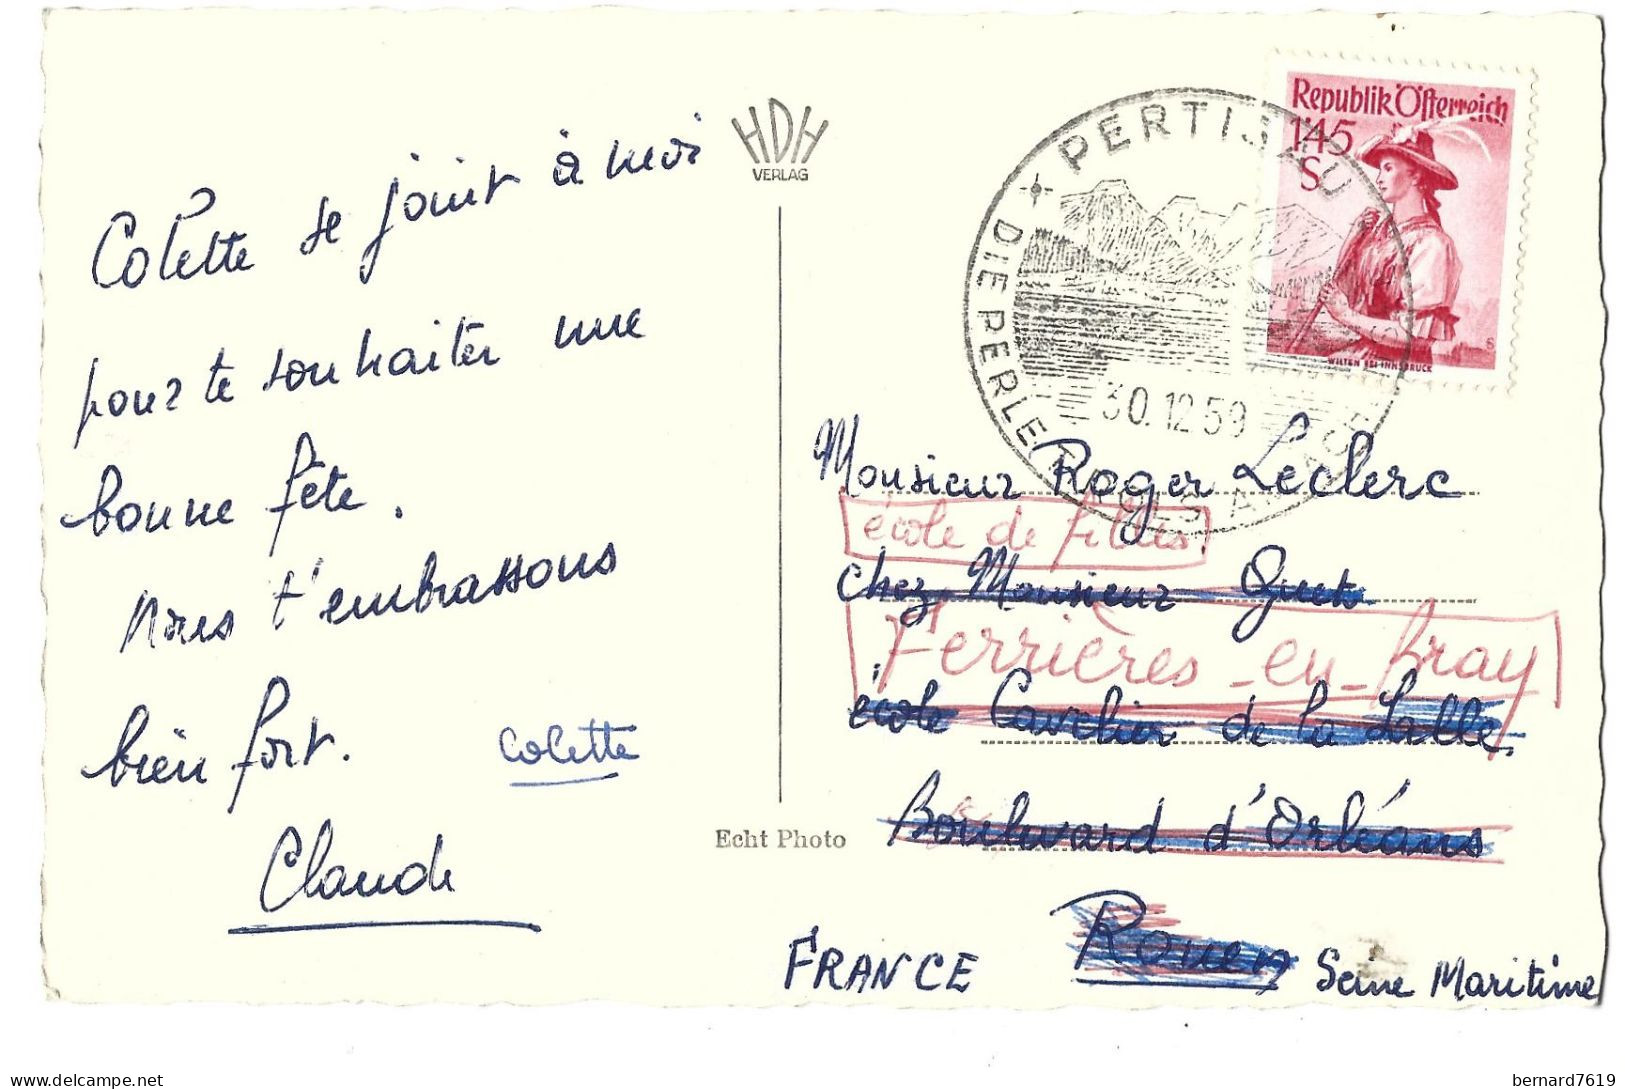 Colette se joint à moi
pour te souhaiter une
bonne fête.
Nous t'embrassons
bien fort.
Colette
Claude
HDH
VERLAG
Echt Photo
PERTISAU
DIE PERLE TIROLS AM ACHENSEE
30.12.59
Republik Österreich
1'45
S
WILTEN BEI INNSBRUCK
Monsieur Roger Leclerc
école de filles
chez Monsieur Quet
Ferrières-en-Bray
école Cavelier de la Salle
Boulevard d'Orléans
Rouen
FRANCE Seine Maritime
bernard7619